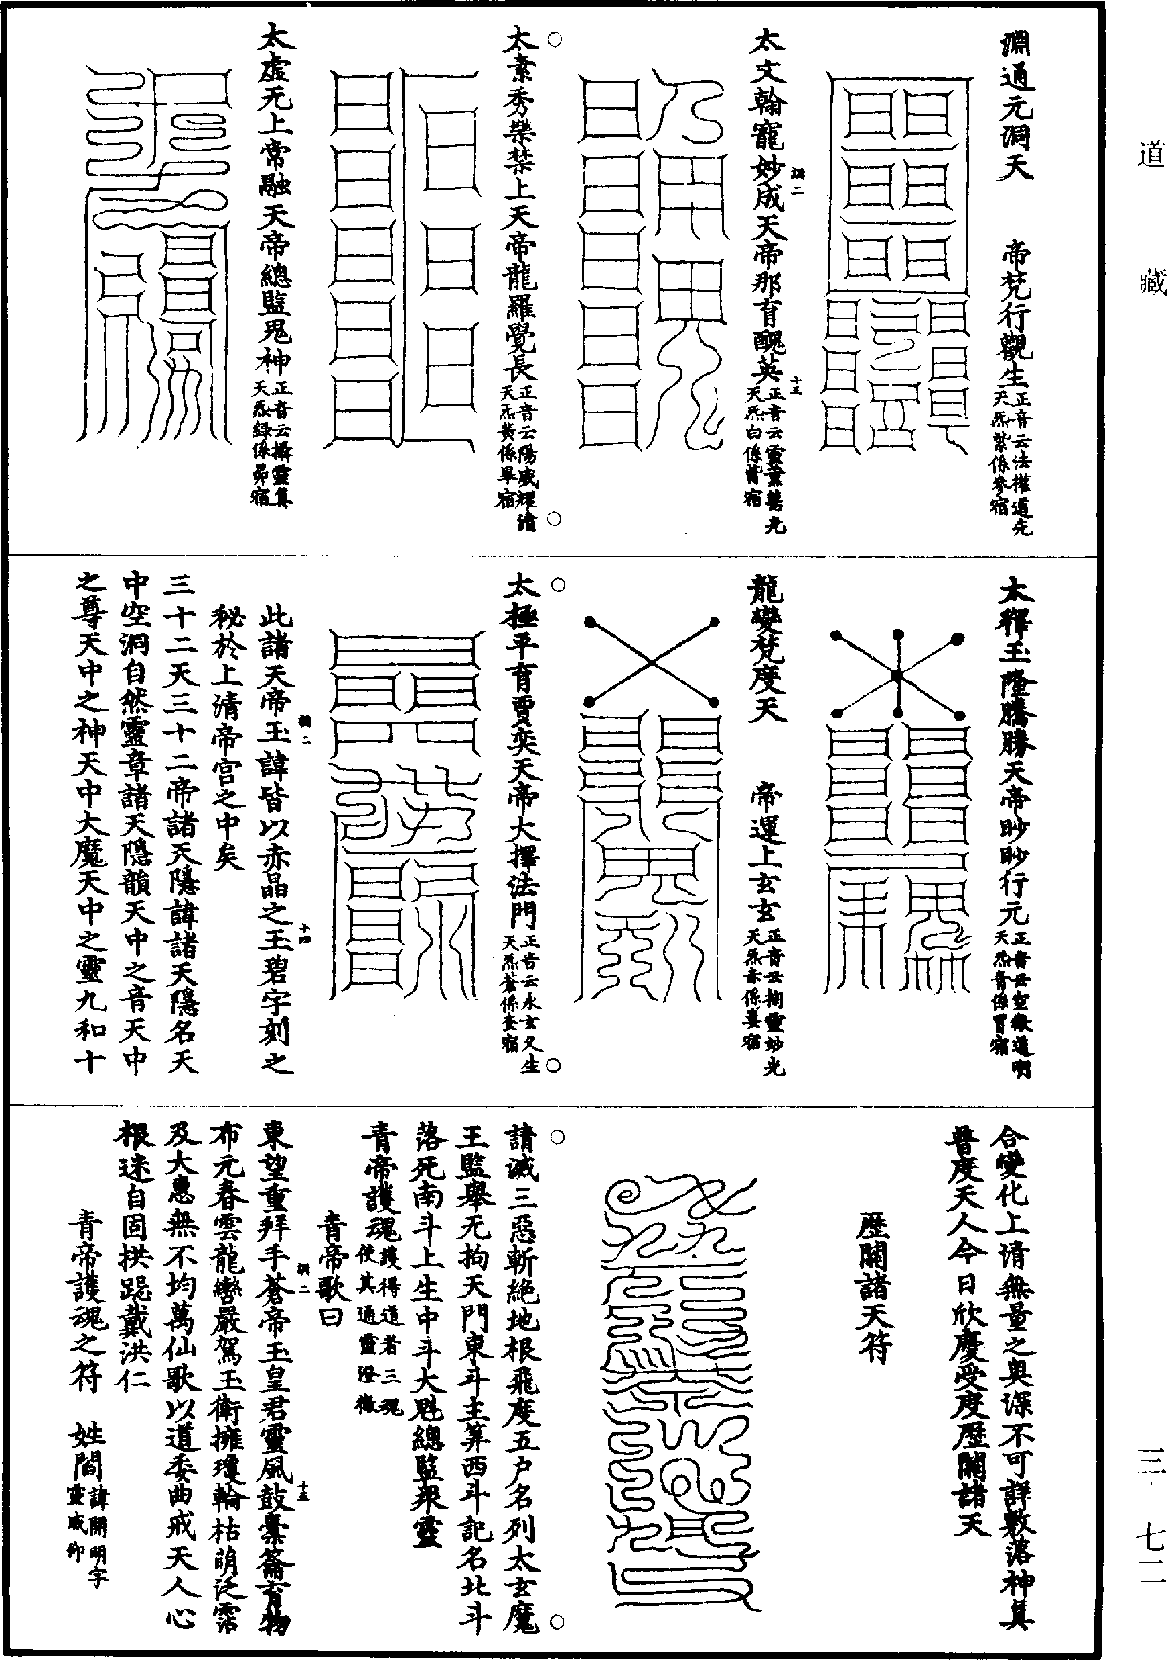 道藏
三·七二
淵通元洞天　帝梵行觀生正音云法權道光天炁紫係參宿
太文翰寵妙成天帝那育醜英正音云靈業舊光天炁白係觜宿
太素秀樂禁上天帝龍羅覺長正音云陽威耀清天炁黃係畢宿
太虛无上常融天帝總監鬼神正音云攝靈真天炁綠係昴宿
太釋玉隆騰勝天帝眇眇行元正音云空微道明天炁青係胃宿
龍變梵度天　帝運上玄玄正音云拘靈妙光天炁赤係婁宿
太極平育賈奕天帝大擇法門正音云永玄久生天炁蒼係奎宿
此諸天帝玉諱皆以赤晶之玉碧字刻之
秘於上清帝宫之中矣
三十二天三十二帝諸天隱諱諸天隱名天
中空洞自然靈章諸天隱韻天中之音天中
之尊天中之神天中大魔天中之靈九和十
合變化上清無量之奥深不可詳敷落神真
普度天人今日欣慶受度歷關諸天
歷關諸天符
請滅三惡斬絶地根飛度五户名列太玄魔
王監舉无拘天門東斗主算西斗記名北斗
落死南斗上生中斗大魁總監衆靈
青帝護魂護得道者三魂使其通靈澄徹
青帝歌曰
東望重拜手蒼帝玉皇君靈風鼓橐籥育物
布元春雲龍轡嚴駕玉衛擁瓊輪枯萌泛霑
及大惠無不均萬仙歌以道委曲戒天人心
根迷自固拱跽戴洪仁
青帝護魂之符　姓閻諱開明字靈威仰